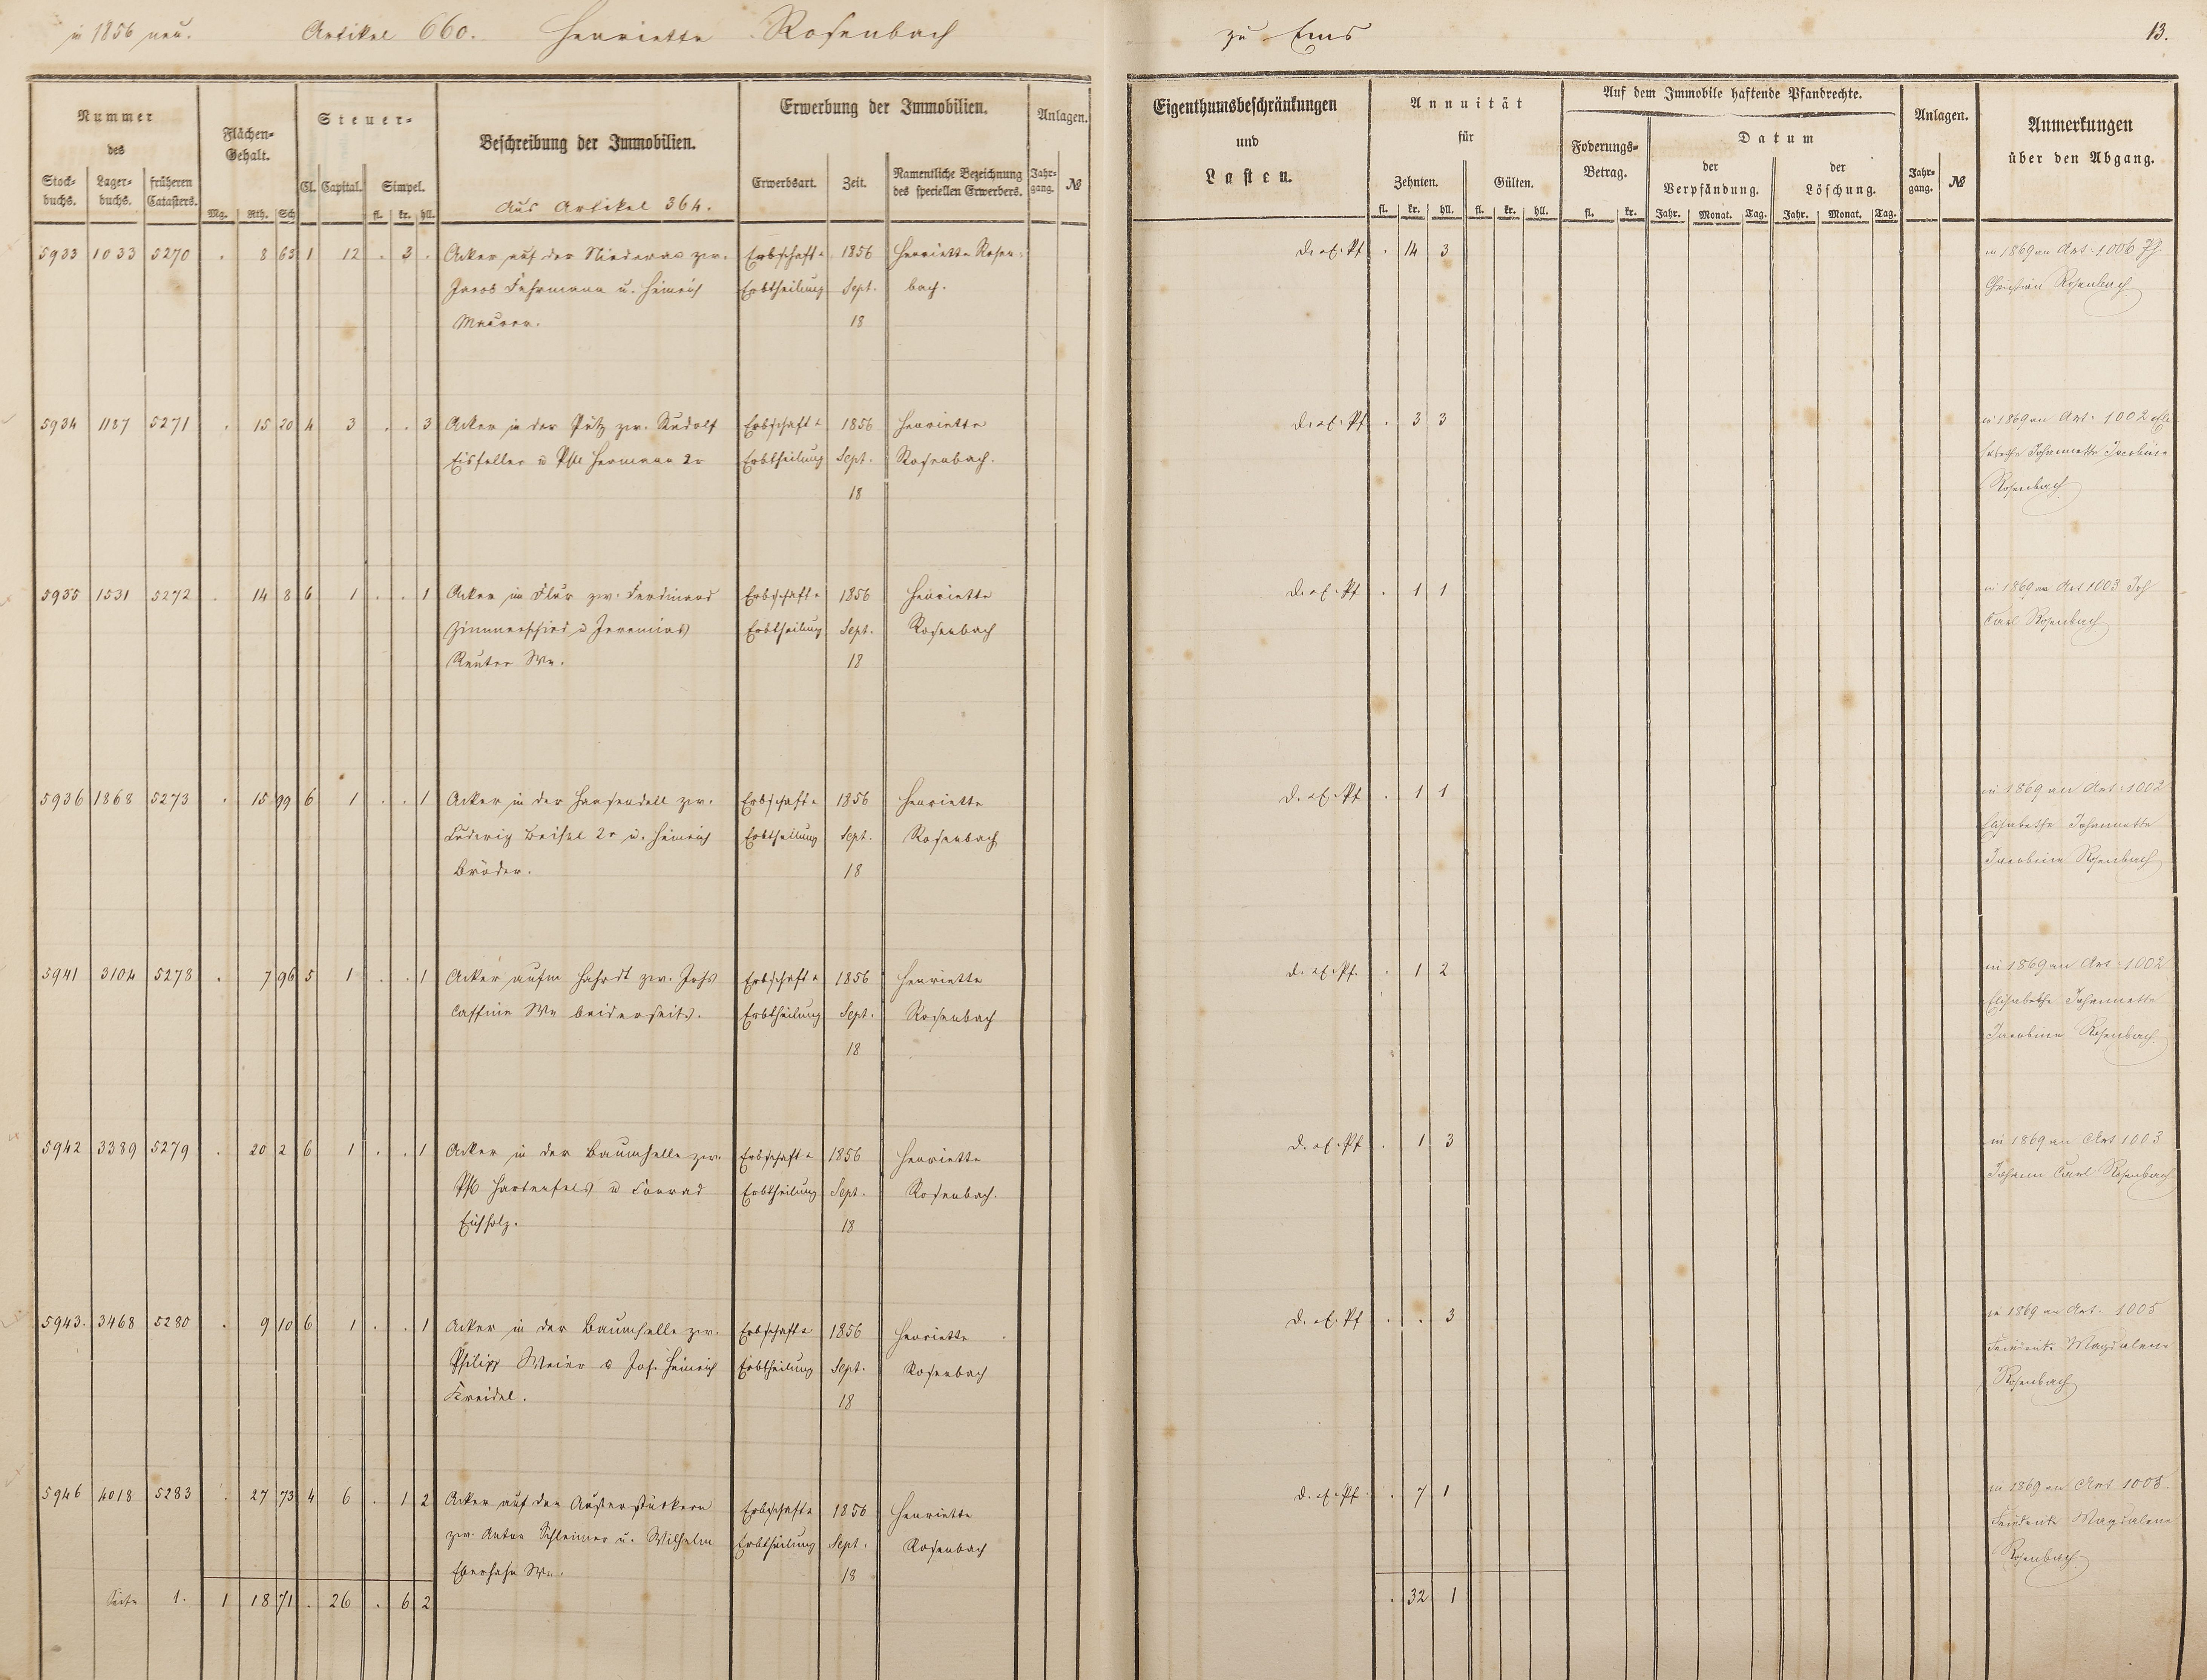 in 1856 neu. Artikel 660. Henriette Rosenbach zu Ems 13.
Nummer des
Stockbuchs. Lagerbuchs. früheren Catasters.
Flächen-Gehalt.
Mg. Rth. Sch
Steuer-
Cl. Capital. Simpel.
fl. kr. hll.
Beschreibung der Immobilien.
Aus Artikel 364.
Erwerbung der Immobilien.
Erwerbsart. Zeit. Namentliche Bezeichnung des speciellen Erwerbers.
Anlagen.
Jahrgang. №
Eigenthumsbeschränkungen
und
Lasten.
Annuität
für
Zehnten. Gülten.
fl. kr. hll. fl. kr. hll.
Auf dem Immobile haftende Pfandrechte.
Foderungs-Betrag.
fl. kr.
Datum
der Verpfändung. der Löschung.
Jahr. Monat. Tag. Jahr. Monat. Tag.
Anlagen.
Jahrgang. №
Anmerkungen
über den Abgang.
5933 1033 5270 . 8 63 1 12 . 3 . Acker auf der zw. Erbschaft 1856 Henriette Rosen- . 14 3 in 1869 an Art. 1006
Jacob Fuhrmann u. Heinrich Erbtheilung Sept. bach. Christian Rosenbach
Maurer. 18
5934 1187 5271 . 15 20 4 3 . . 3 Acker in der Pütz zw. Rudolf Erbschaft 1856 Henriette . 3 3 in 1869 an Art. 1002 Eli
Eisfeller u Phil Hermann 2r Erbtheilung Sept. Rosenbach. sabethe Johannette Jacobine
18 Rosenbach
5935 1531 5272 . 14 8 6 1 . . 1 Acker in Flur zw. Ferdinand Erbschaft 1856 Henriette . 1 1 in 1869 an Art 1003 Joh
Zimmerschied u Jeremias Erbtheilung Sept. Rosenbach Carl Rosenbach
Reuter We. 18
5936 1868 5273 . 15 99 6 1 . . 1 Acker in der Hansendell zw. Erbschaft 1856 Henriette . 1 1 in 1869 an Art. 1002
Ludwig Beisel 2r u. Heinrich Erbtheilung Sept. Rosenbach Elisabethe Johannette
Bröder. 18 Jacobine Rosenbach
5941 3104 5278 . 7 96 5 1 . . 1 Acker aufm Hahrdt zw. Johs Erbschaft 1856 Henriette . 1 2 in 1869 an Art. 1002
Caffine We beiderseits. Erbtheilung Sept. Rosenbach Elisabethe Johannette
18 Jacobine Rosenbach
5942 3389 5279 . 20 2 6 1 . . 1 Acker in der Baumhelle zw. Erbschaft 1856 Henriette . 1 3 in 1869 an Art 1003
Hartenfels u Conrad Erbtheilung Sept. Rosenbach. Johann Carl Rosenbach
Eichholz. 18
5943. 3468 5280 . 9 10 6 1 . . 1 Acker in der Baumhelle zw. Erbschaft 1856 Henriette . . 3 in 1869 an Art. 1005
Philipp Meier u Joh. Heinrich Erbtheilung Sept. Rosenbach Friedrike Magdalene
Kreidel. 18 Rosenbach
5946 4018 5283 . 27 73 4 6 . 1 2 Acker auf den Erbschaft 1856 Henriette . 7 1 in 1869 an Art 1005
zw. Anton Schleimer u. Wilhelm Erbtheilung Sept. Rosenbach Friedrike Magdalene
Eberhahn We. 18 Rosenbach
Seite 1. 1 18 71 . 26 . 6 2 . 32 1